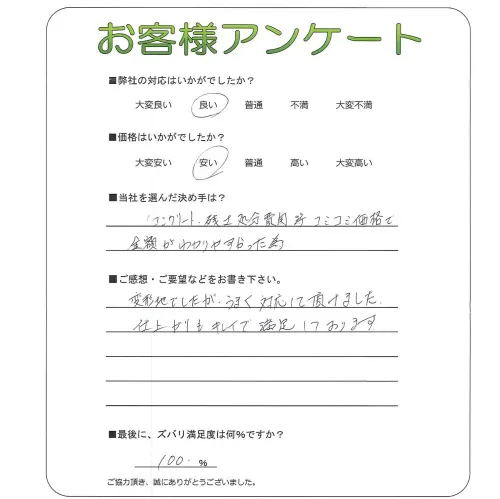 お客様アンケート
■弊社の対応はいかがでしたか？
大変良い 良い 普通 不満 大変不満
■価格はいかがでしたか？
大変安い 安い 普通 高い 大変高い
■当社を選んだ決め手は？
コンクリート・残土処分費用等コミコミ価格で
金額がわかりやすかった為
■ご感想・ご要望などをお書き下さい。
変形地でしたが、うまく対応して頂けました。
仕上がりもキレイで満足しております
■最後に、ズバリ満足度は何％ですか？
100. %
ご協力頂き、誠にありがとうございました。